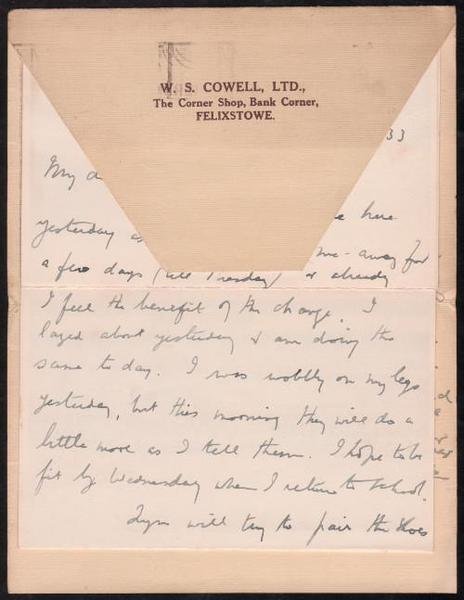 W. S. COWELL, LTD.,
The Corner Shop, Bank Corner,
FELIXSTOWE.
33
My d
here
yesterday as
me away for
a few days (till Tuesday) & already
I feel the benefit of the change. I
lazed about yesterday & am doing the
same to day. I was wobbly on my legs
yesterday, but this morning they will do a
little more as I tell them. I hope to be
fit by Wednesday when I return to school.
will try to pair the shoes